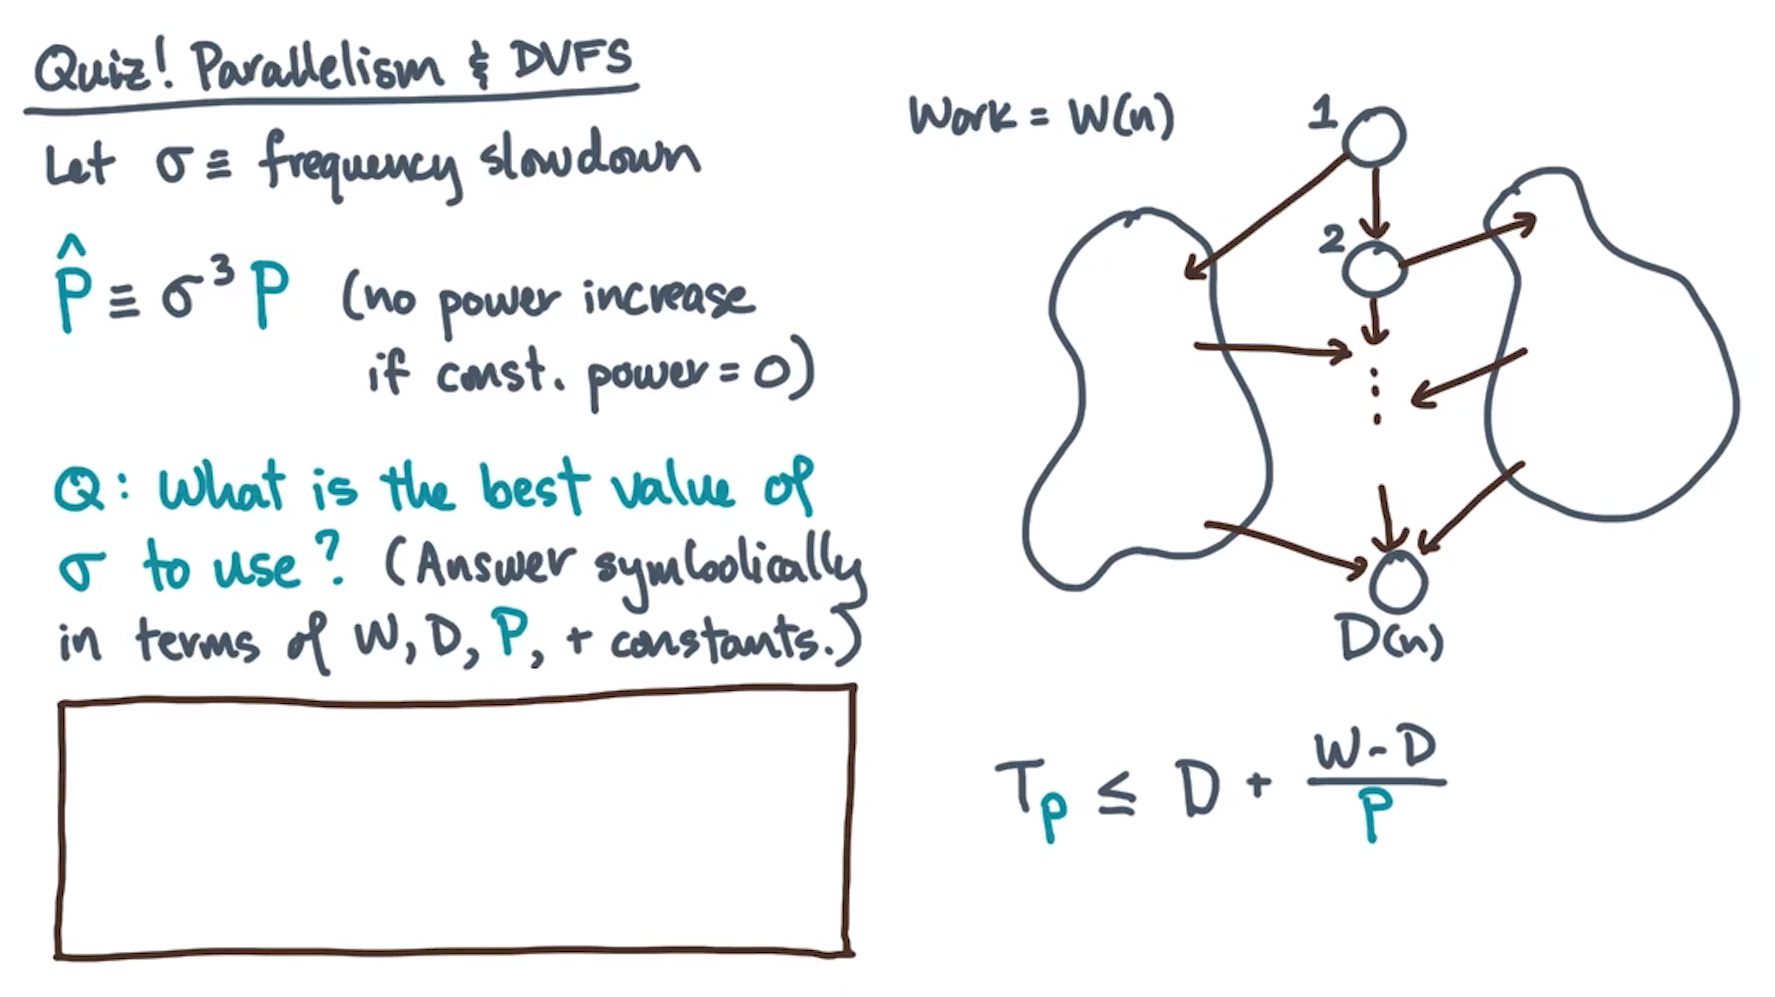 Quiz! Parallelism & DVFS
Let σ ≡ frequency slowdown
P̂ ≡ σ³ P (no power increase
if const. power = 0)
Q: What is the best value of
σ to use? (Answer symbolically
in terms of W, D, P, + constants.)
Work = W(n)
1
2
⋮
D(n)
T_P ≤ D + (W - D)/P